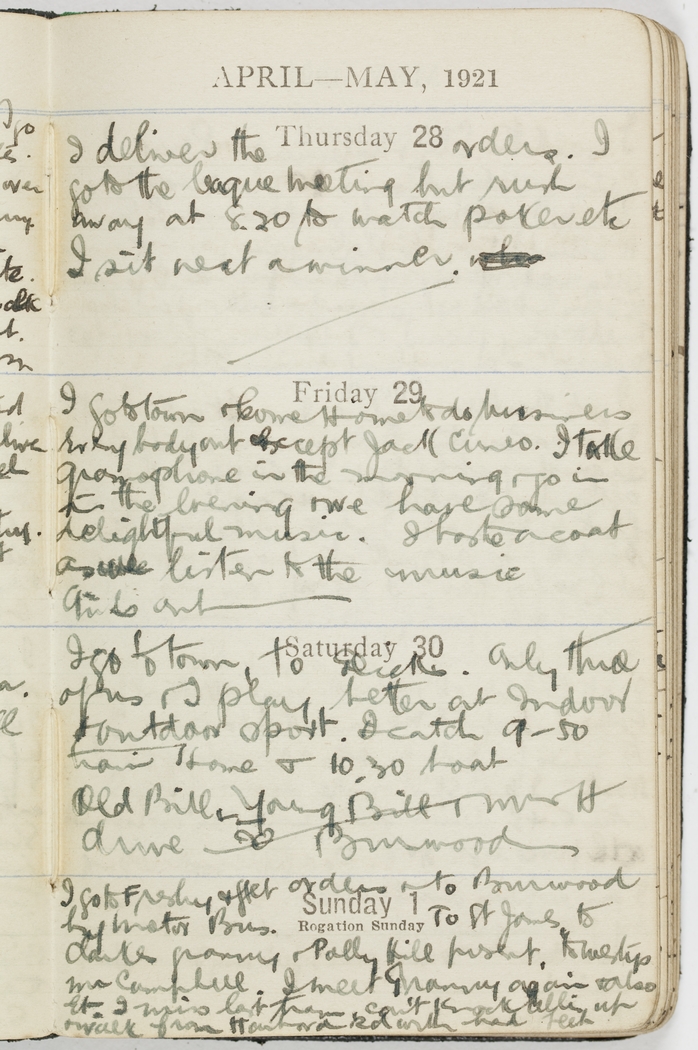 APRIL—MAY, 1921
Thursday 28
I deliver the orders. I
go to the league meeting but rush
away at 8.20 to watch poker etc
I sit next a winner.
Friday 29
I go to town & come Home to do business
Everybody out except Jack Cunco. I take
gramophone in the morning & go in
in the Evening & we have some
delightful music. I taste a coat
as we listen to the music
Girls out
Saturday 30
I go to town, to Dicks. Only three
of us & I play better at Indoor
& outdoor sport. I catch 9-50
train Home & 10.30 boat
Old Bill, Young Bill &
drive to Burwood
I go to Freshy & get orders & to Burwood
Sunday 1
by motor Bus. To St James, to
Rogation Sunday
granny & Polly Hill present,
Mr Campbell. I meet Granny again & also
I miss last tram, can't knock up
& walk from Rd with bad feet